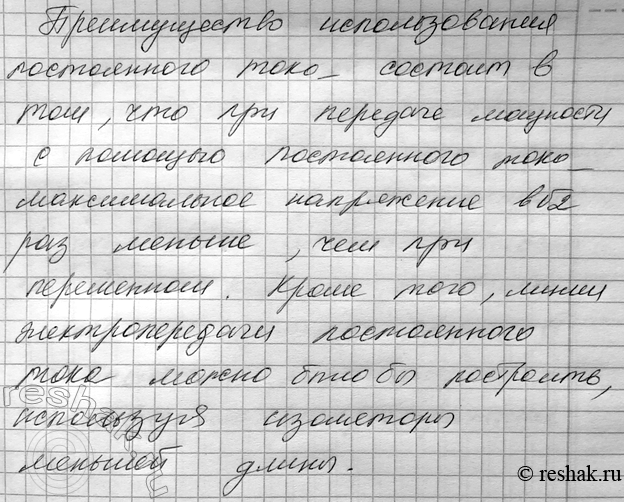 Преимущество использования
постоянного тока состоит в
том, что при передаче мощности
с помощью постоянного тока
максимальное напряжение в √2
раз меньше, чем при
переменном. Кроме того, линии
электропередачи постоянного
тока можно было бы построить,
используя изоляторы
меньшей длины.
reshak.ru
© reshak.ru